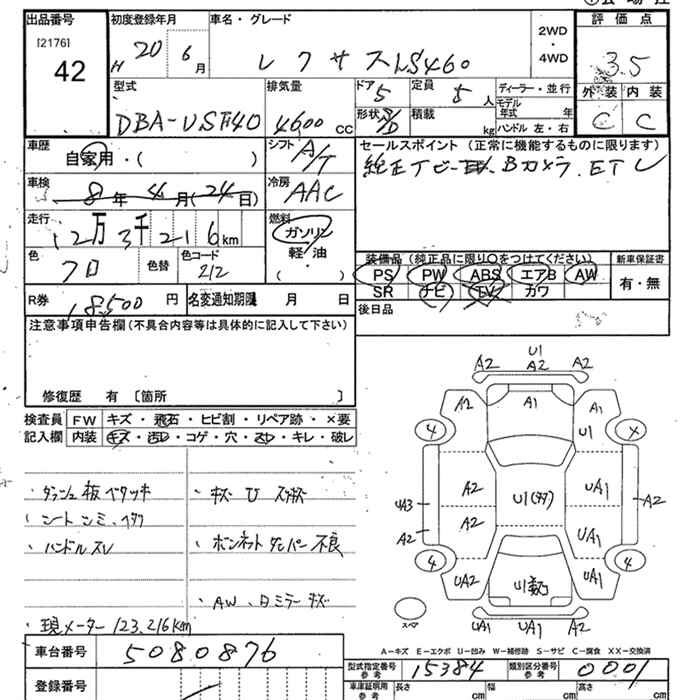 出品番号
[2176]
42
初度登録年月
H 20 6月
車名・グレード
レクサス LS460
2WD
・
4WD
評価点
3.5
外装 内装
C C
型式
DBA-USF40
排気量
4600 cc
ドア 5
定員 5人
形状
積載 kg
ディーラー・並行
モデル年式 年
ハンドル 左・右
車歴
自家用・( )
シフト
A/T
セールスポイント (正常に機能するものに限ります)
純正TV Bカメラ. ETC
車検
8年4月(24日)
冷房
AAC
走行
12万3千216km
燃料
ガソリン
軽・油
( )
色
クロ
色替
色コード
212
装備品 (純正品に限り○をつけてください)
PS PW ABS エアB AW
SR ナビ TV カワ
新車保証書
有・無
R券 18,500円
名変通知期限 月 日
後日品
注意事項申告欄 (不具合内容等は具体的に記入して下さい)
修復歴 有 〔箇所 〕
検査員
記入欄
FW キズ・飛石・ヒビ割・リペア跡・×要
内装 キズ・汚レ・コゲ・穴・スレ・キレ・破レ
ダッシュ板ベタツキ
シートシミ、
ハンドルスレ
現メーター 123,216km
・ボンネットダンパー不良
・AW、Dミラーキズ
U1
A2 A2 A2
A2 A1 A1
4 U1 ×
A2 UA1
UA3 U1 A2
A2 A2 UA1
4 4
UA2 U1 UA1
スペア
UA1 UA1 A2
A－キズ E－エクボ U－凹み W－補修跡 S－サビ C－腐食 XX－交換済
車台番号 5080876
登録番号
型式指定番号 参考 15384
類別区分番号 参考 0001
車庫証明用 参考 長さ cm 幅 cm 高さ cm